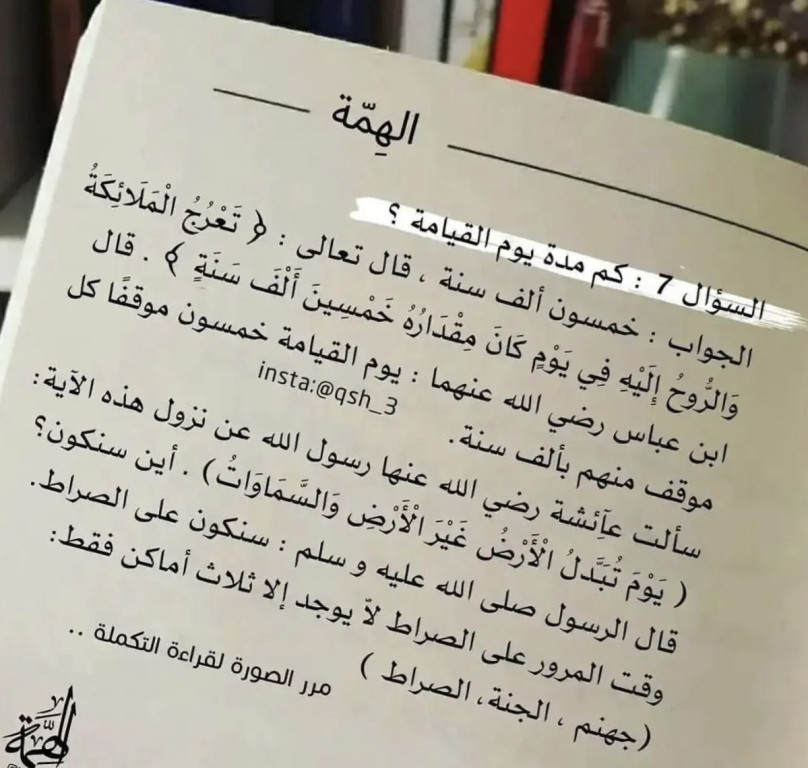 الهِمّة
السؤال 7 : كم مدة يوم القيامة ؟
الجواب : خمسون ألف سنة ، قال تعالى : ﴿ تَعْرُجُ الْمَلَائِكَةُ
وَالرُّوحُ إِلَيْهِ فِي يَوْمٍ كَانَ مِقْدَارُهُ خَمْسِينَ أَلْفَ سَنَةٍ ﴾ . قال
ابن عباس رضي الله عنهما : يوم القيامة خمسون موقفًا كل
موقف منهم بألف سنة.
insta:@qsh_3
سألت عآئشة رضي الله عنها رسول الله عن نزول هذه الآية:
( يَوْمَ تُبَدَّلُ الْأَرْضُ غَيْرَ الْأَرْضِ وَالسَّمَاوَاتُ) . أين سنكون؟
قال الرسول صلى الله عليه و سلم : سنكون على الصراط.
وقت المرور على الصراط لاّ يوجد إلا ثلاث أماكن فقط:
(جهنم ، الجنة، الصراط )
مرر الصورة لقراءة التكملة ..
الهمّة